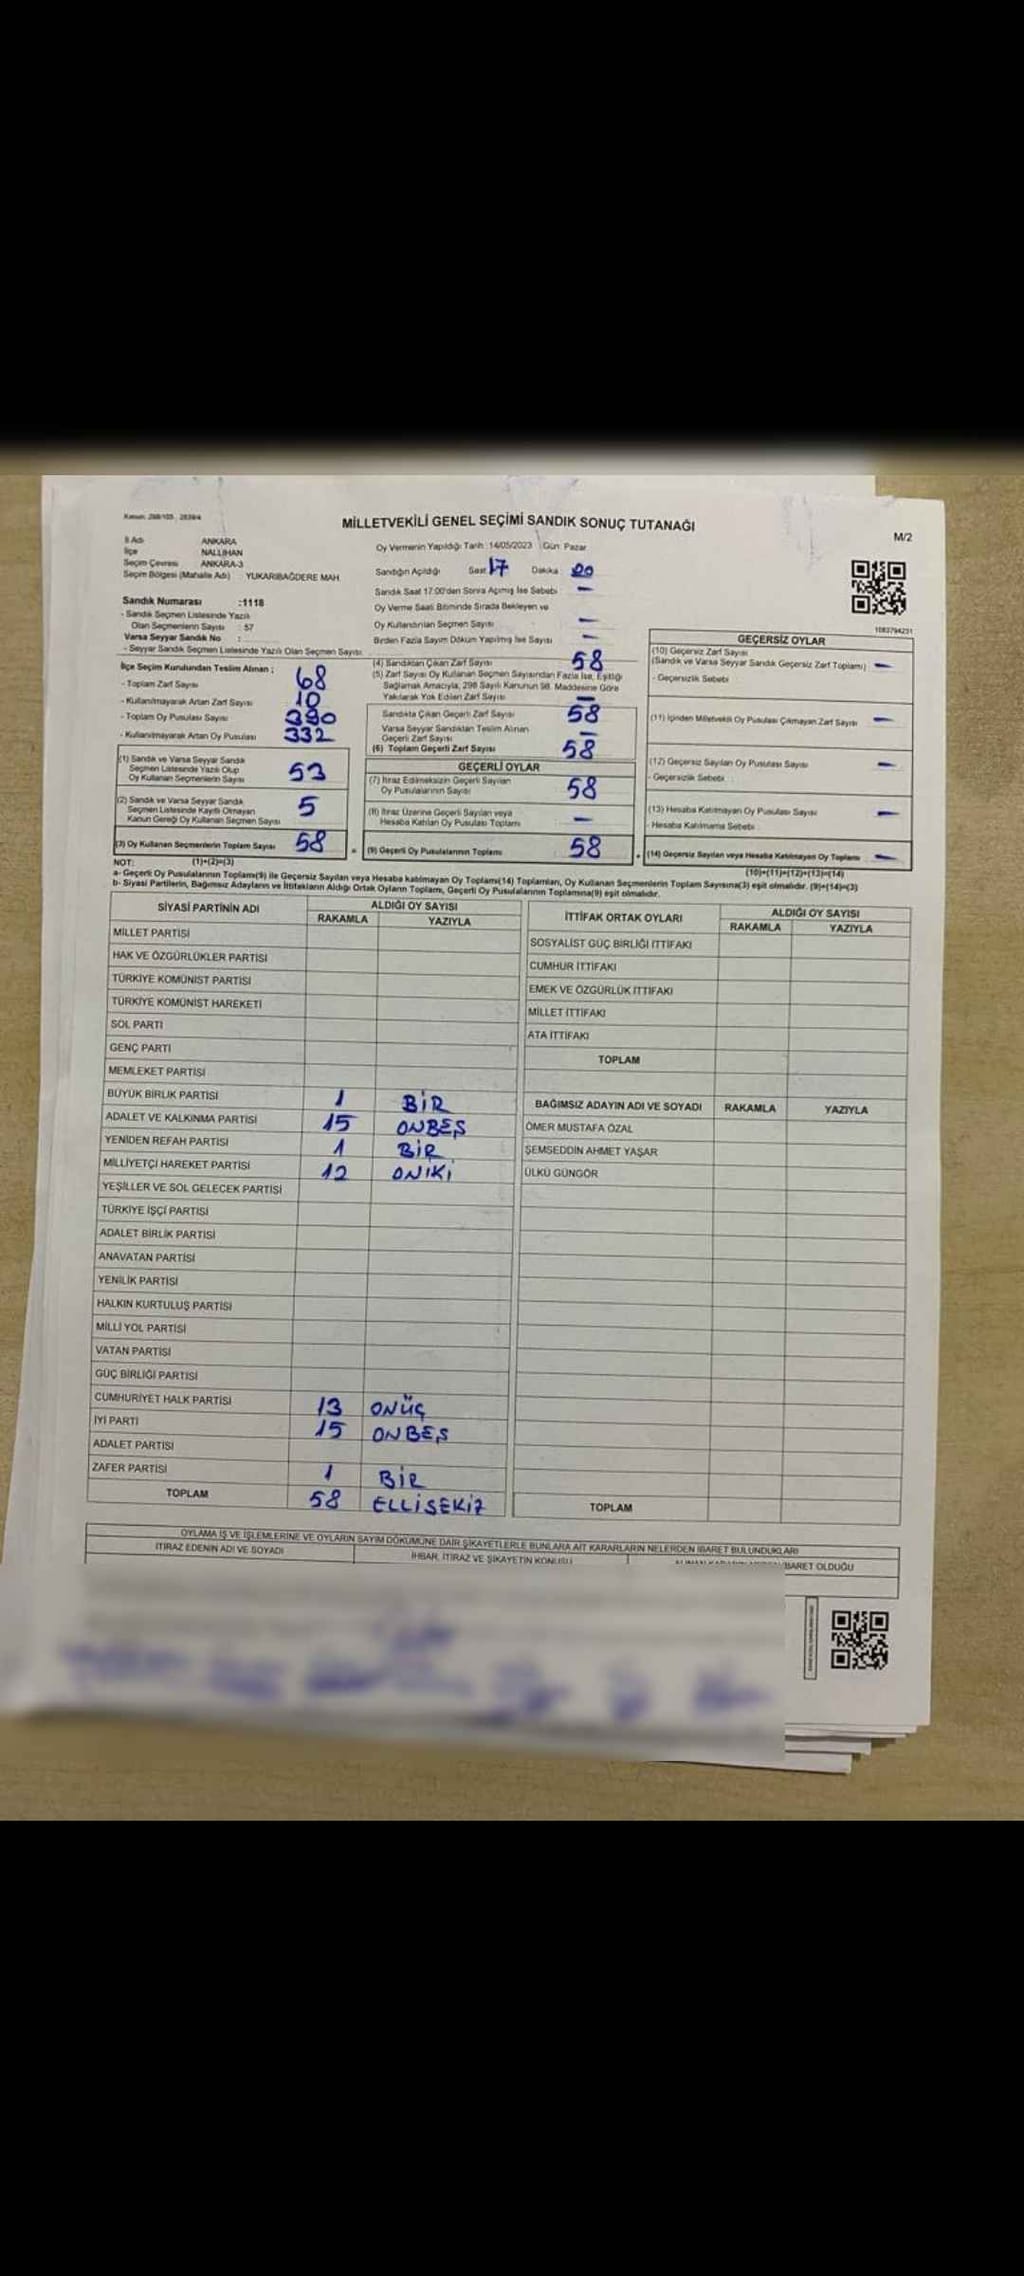 Kanun: 298/105 , 2839/4
MİLLETVEKİLİ GENEL SEÇİMİ SANDIK SONUÇ TUTANAĞI
M/2
İl Adı ANKARA
İlçe NALLIHAN
Seçim Çevresi ANKARA-3
Seçim Bölgesi (Mahalle Adı) YUKARIBAĞDERE MAH.
Oy Vermenin Yapıldığı Tarih :14/05/2023 Gün: Pazar
Sandığın Açıldığı Saat 17 Dakika 20
Sandık Saat 17:00'den Sonra Açılmış İse Sebebi —
Oy Verme Saati Bitiminde Sırada Bekleyen ve
Oy Kullandırılan Seçmen Sayısı —
Birden Fazla Sayım Döküm Yapılmış İse Sayısı —
1083794231
Sandık Numarası :1118
- Sandık Seçmen Listesinde Yazılı
Olan Seçmenlerin Sayısı : 57
Varsa Seyyar Sandık No :
- Seyyar Sandık Seçmen Listesinde Yazılı Olan Seçmen Sayısı
İlçe Seçim Kurulundan Teslim Alınan ;
- Toplam Zarf Sayısı 68
- Kullanılmayarak Artan Zarf Sayısı 10
- Toplam Oy Pusulası Sayısı 390
- Kullanılmayarak Artan Oy Pusulası 332
(1) Sandık ve Varsa Seyyar Sandık
Seçmen Listesinde Yazılı Olup
Oy Kullanan Seçmenlerin Sayısı 53
(2) Sandık ve Varsa Seyyar Sandık
Seçmen Listesinde Kayıtlı Olmayan
Kanun Gereği Oy Kullanan Seçmen Sayısı 5
(3) Oy Kullanan Seçmenlerin Toplam Sayısı 58
(4) Sandıktan Çıkan Zarf Sayısı 58
(5) Zarf Sayısı Oy Kullanan Seçmen Sayısından Fazla İse, Eşitliği
Sağlamak Amacıyla, 298 Sayılı Kanunun 98. Maddesine Göre
Yakılarak Yok Edilen Zarf Sayısı —
Sandıkta Çıkan Geçerli Zarf Sayısı 58
Varsa Seyyar Sandıktan Teslim Alınan
Geçerli Zarf Sayısı —
(6) Toplam Geçerli Zarf Sayısı 58
GEÇERLİ OYLAR
(7) İtiraz Edilmeksizin Geçerli Sayılan
Oy Pusulalarının Sayısı 58
(8) İtiraz Üzerine Geçerli Sayılan veya
Hesaba Katılan Oy Pusulası Toplamı —
= (9) Geçerli Oy Pusulalarının Toplamı 58
GEÇERSİZ OYLAR
(10) Geçersiz Zarf Sayısı
(Sandık ve Varsa Seyyar Sandık Geçersiz Zarf Toplamı) —
- Geçersizlik Sebebi
(11) İçinden Milletvekili Oy Pusulası Çıkmayan Zarf Sayısı —
(12) Geçersiz Sayılan Oy Pusulası Sayısı —
- Geçersizlik Sebebi
(13) Hesaba Katılmayan Oy Pusulası Sayısı —
- Hesaba Katılmama Sebebi
+ (14) Geçersiz Sayılan veya Hesaba Katılmayan Oy Toplamı —
NOT: (1)+(2)=(3)
(10)+(11)+(12)+(13)=(14)
a- Geçerli Oy Pusulalarının Toplamı(9) ile Geçersiz Sayılan veya Hesaba katılmayan Oy Toplamı(14) Toplamları, Oy Kullanan Seçmenlerin Toplam Sayısına(3) eşit olmalıdır. (9)+(14)=(3)
b- Siyasi Partilerin, Bağımsız Adayların ve İttifakların Aldığı Ortak Oyların Toplamı, Geçerli Oy Pusulalarının Toplamına(9) eşit olmalıdır.
SİYASİ PARTİNİN ADI ALDIĞI OY SAYISI
RAKAMLA YAZIYLA
MİLLET PARTİSİ
HAK VE ÖZGÜRLÜKLER PARTİSİ
TÜRKİYE KOMÜNİST PARTİSİ
TÜRKİYE KOMÜNİST HAREKETİ
SOL PARTİ
GENÇ PARTİ
MEMLEKET PARTİSİ
BÜYÜK BİRLİK PARTİSİ 1 BİR
ADALET VE KALKINMA PARTİSİ 15 ONBEŞ
YENİDEN REFAH PARTİSİ 1 BİR
MİLLİYETÇİ HAREKET PARTİSİ 12 ONİKİ
YEŞİLLER VE SOL GELECEK PARTİSİ
TÜRKİYE İŞÇİ PARTİSİ
ADALET BİRLİK PARTİSİ
ANAVATAN PARTİSİ
YENİLİK PARTİSİ
HALKIN KURTULUŞ PARTİSİ
MİLLİ YOL PARTİSİ
VATAN PARTİSİ
GÜÇ BİRLİĞİ PARTİSİ
CUMHURİYET HALK PARTİSİ 13 ONÜÇ
İYİ PARTİ 15 ONBEŞ
ADALET PARTİSİ
ZAFER PARTİSİ 1 BİR
TOPLAM 58 ELLİSEKİZ
İTTİFAK ORTAK OYLARI ALDIĞI OY SAYISI
RAKAMLA YAZIYLA
SOSYALİST GÜÇ BİRLİĞİ İTTİFAKI
CUMHUR İTTİFAKI
EMEK VE ÖZGÜRLÜK İTTİFAKI
MİLLET İTTİFAKI
ATA İTTİFAKI
TOPLAM
BAĞIMSIZ ADAYIN ADI VE SOYADI RAKAMLA YAZIYLA
ÖMER MUSTAFA ÖZAL
ŞEMSEDDİN AHMET YAŞAR
ÜLKÜ GÜNGÖR
TOPLAM
OYLAMA İŞ VE İŞLEMLERİNE VE OYLARIN SAYIM DÖKÜMÜNE DAİR ŞİKAYETLERLE BUNLARA AİT KARARLARIN NELERDEN İBARET BULUNDUKLARI
İTİRAZ EDENİN ADI VE SOYADI İHBAR, İTİRAZ VE ŞİKAYETİN KONUSU İBARET OLDUĞU